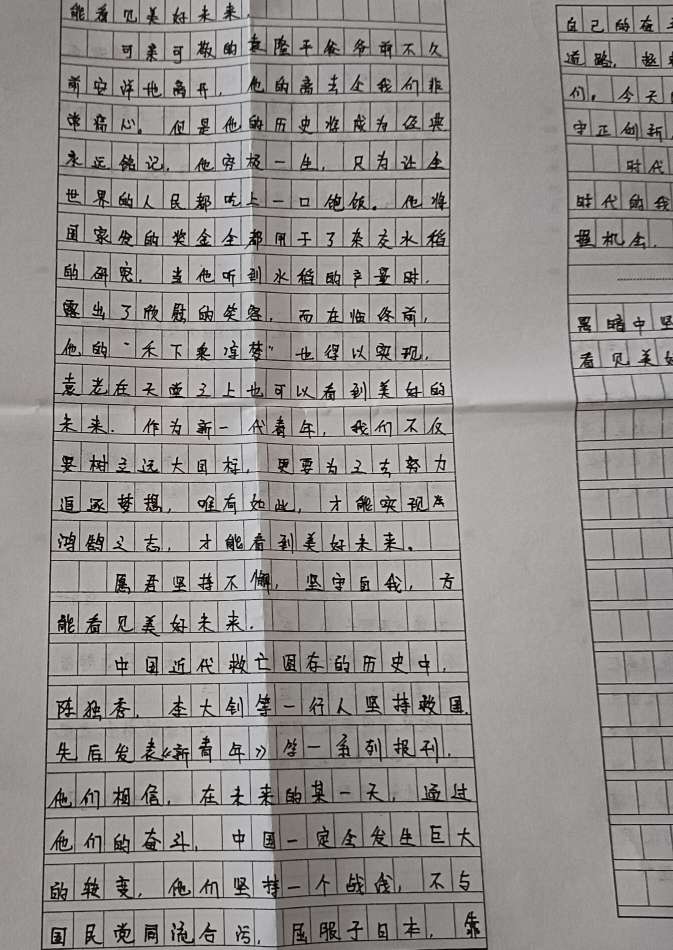 能看见美好未来.
可亲可敬的袁隆平爷爷前不久
前安详地离开, 他的离去令我们非
常痛心。但是他的历史将成为经典
永远铭记, 他穷极一生, 只为让全
世界的人民都吃上一口饱饭。他将
国家发的奖金全都用于了杂交水稻
的研究, 当他听到水稻的产量时,
露出了欣慰的笑容, 而在临终前,
他的“禾下乘凉梦”也得以实现,
袁老在天堂之上也可以看到美好的
未来. 作为新一代青年, 我们不仅
要树立远大目标, 更要为之去努力
追逐梦想, 唯有如此, 才能实现
鸿鹄之志, 才能看到美好未来。
愿君坚持不懈, 坚守自我, 方
能看见美好未来.
中国近代救亡图存的历史中,
陈独秀, 李大钊等一行人坚持救国,
先后发表《新青年》等一系列报刊,
他们相信, 在未来的某一天, 通过
他们的奋斗, 中国一定会发生巨大
的转变, 他们坚持一个战线, 不与
国民党同流合污, 屈服于日本, 靠
自己的奋
道路, 拯
们。今天
守正创新
时代
时代的我
握机会.
黑暗中坚
看见美好